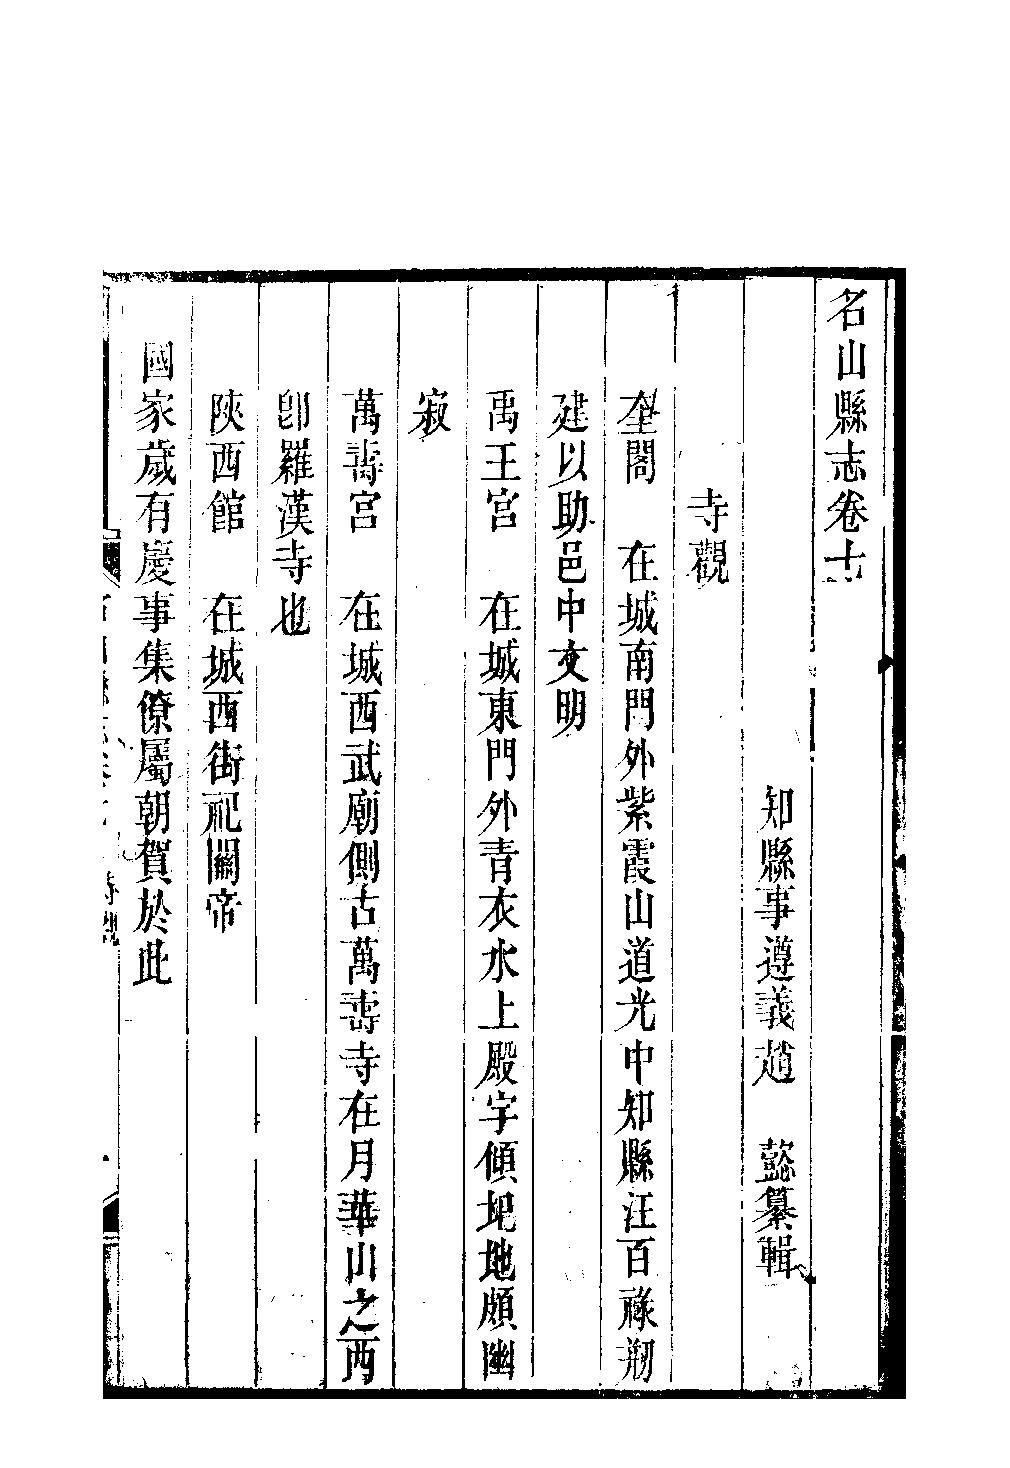 名山縣志卷十
知縣事遵義趙　懿纂輯
寺觀
奎閣　在城南門外紫霞山道光中知縣汪百祿剏
建以助邑中文明
禹王宮　在城東門外青衣水上殿宇傾圯地頗幽
寂
萬壽宮　在城西武廟側古萬壽寺在月華山之西
卽羅漢寺也
陝西館　在城西街祀關帝
國家歲有慶事集僚屬朝賀於此